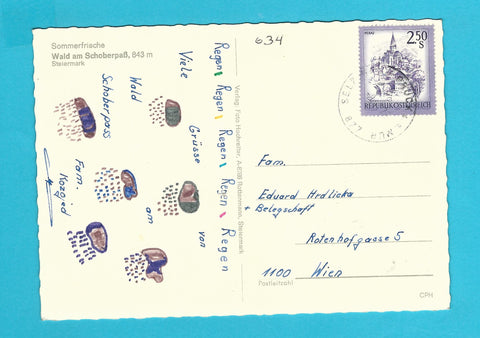 Sommerfrische
Wald am Schoberpaß, 843 m
Steiermark
634
Regen, Regen, Regen, Regen, Regen
Viele Grüsse von
Wald am
Schoberpass
Fam.
MURAU
2.50
S
REPUBLIK ÖSTERREICH
Fam.
Eduard Hrdlicka
+ Belegschaft
Rotenhofgasse 5
1100 Wien
Postleitzahl
CPH